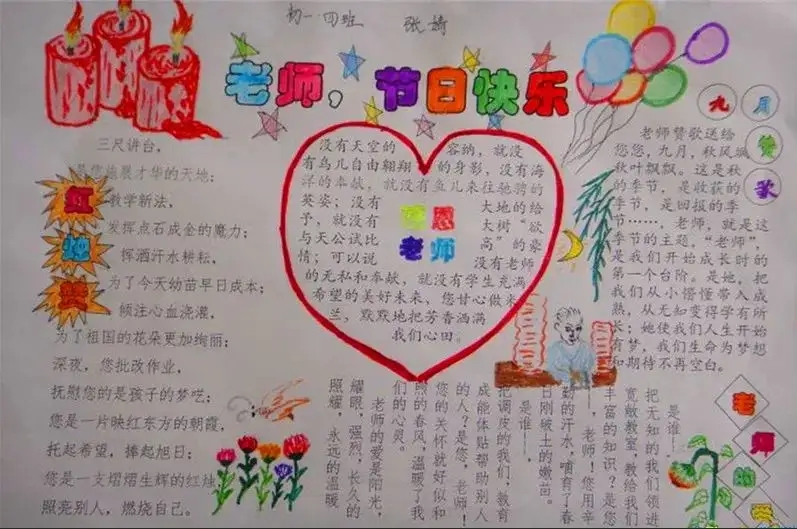 初一四班 张婧
老师，节日快乐
三尺讲台，
是您施展才华的天地；
教学新法，
发挥点石成金的魔力；
挥洒汗水耕耘，
为了今天幼苗早日成本；
倾注心血浇灌，
为了祖国的花朵更加绚丽；
深夜，您批改作业，
抚慰您的是孩子的梦呓；
您是一片映红东方的朝霞，
托起希望，捧起旭日；
您是一支熠熠生辉的红烛
照亮别人，燃烧自己。
红
烛
赞
没有天空的容纳，就没
有鸟儿自由翱翔的身影，没有海
洋的奉献，就没有鱼儿来往驰骋的
英姿；没有大地的给
予，就没有大树“欲
与天公试比高”的豪
情；可以说没有老师
的无私和奉献，就没有学生充满
希望的美好未来、您甘心做米
兰，默默地把芳香洒满
我们心田。
感恩
老师
九月
赞
歌
老师赞歌送给
您您，九月，秋风飒
秋叶飘飘。这是秋
的季节，是收获的
季节，是回报的季
节……，老师，就是这
季节的主题，“老师”，
是我们开始成长时的
第一个台阶。是她，把
我们从小懵懂带入成
熟，从无知变得学有所
长；她使我们人生开始
有梦，我们生命为梦想
和期待不再空白。
是谁—，
把无知的我们领进
宽敞教室，教给我们
丰富的知识？是您
，老师！您用辛
勤的汗水，哺育了春
日刚破土的嫩苗。
是谁—，
把调皮的我们，教育
成能体贴帮助别人
的人？是您，老师！
您的关怀就好似和
煦的春风，温暖了我
们的心灵。
老师的爱是阳光，
耀眼，强烈，长久的
照耀，永远的温暖
老
师
的